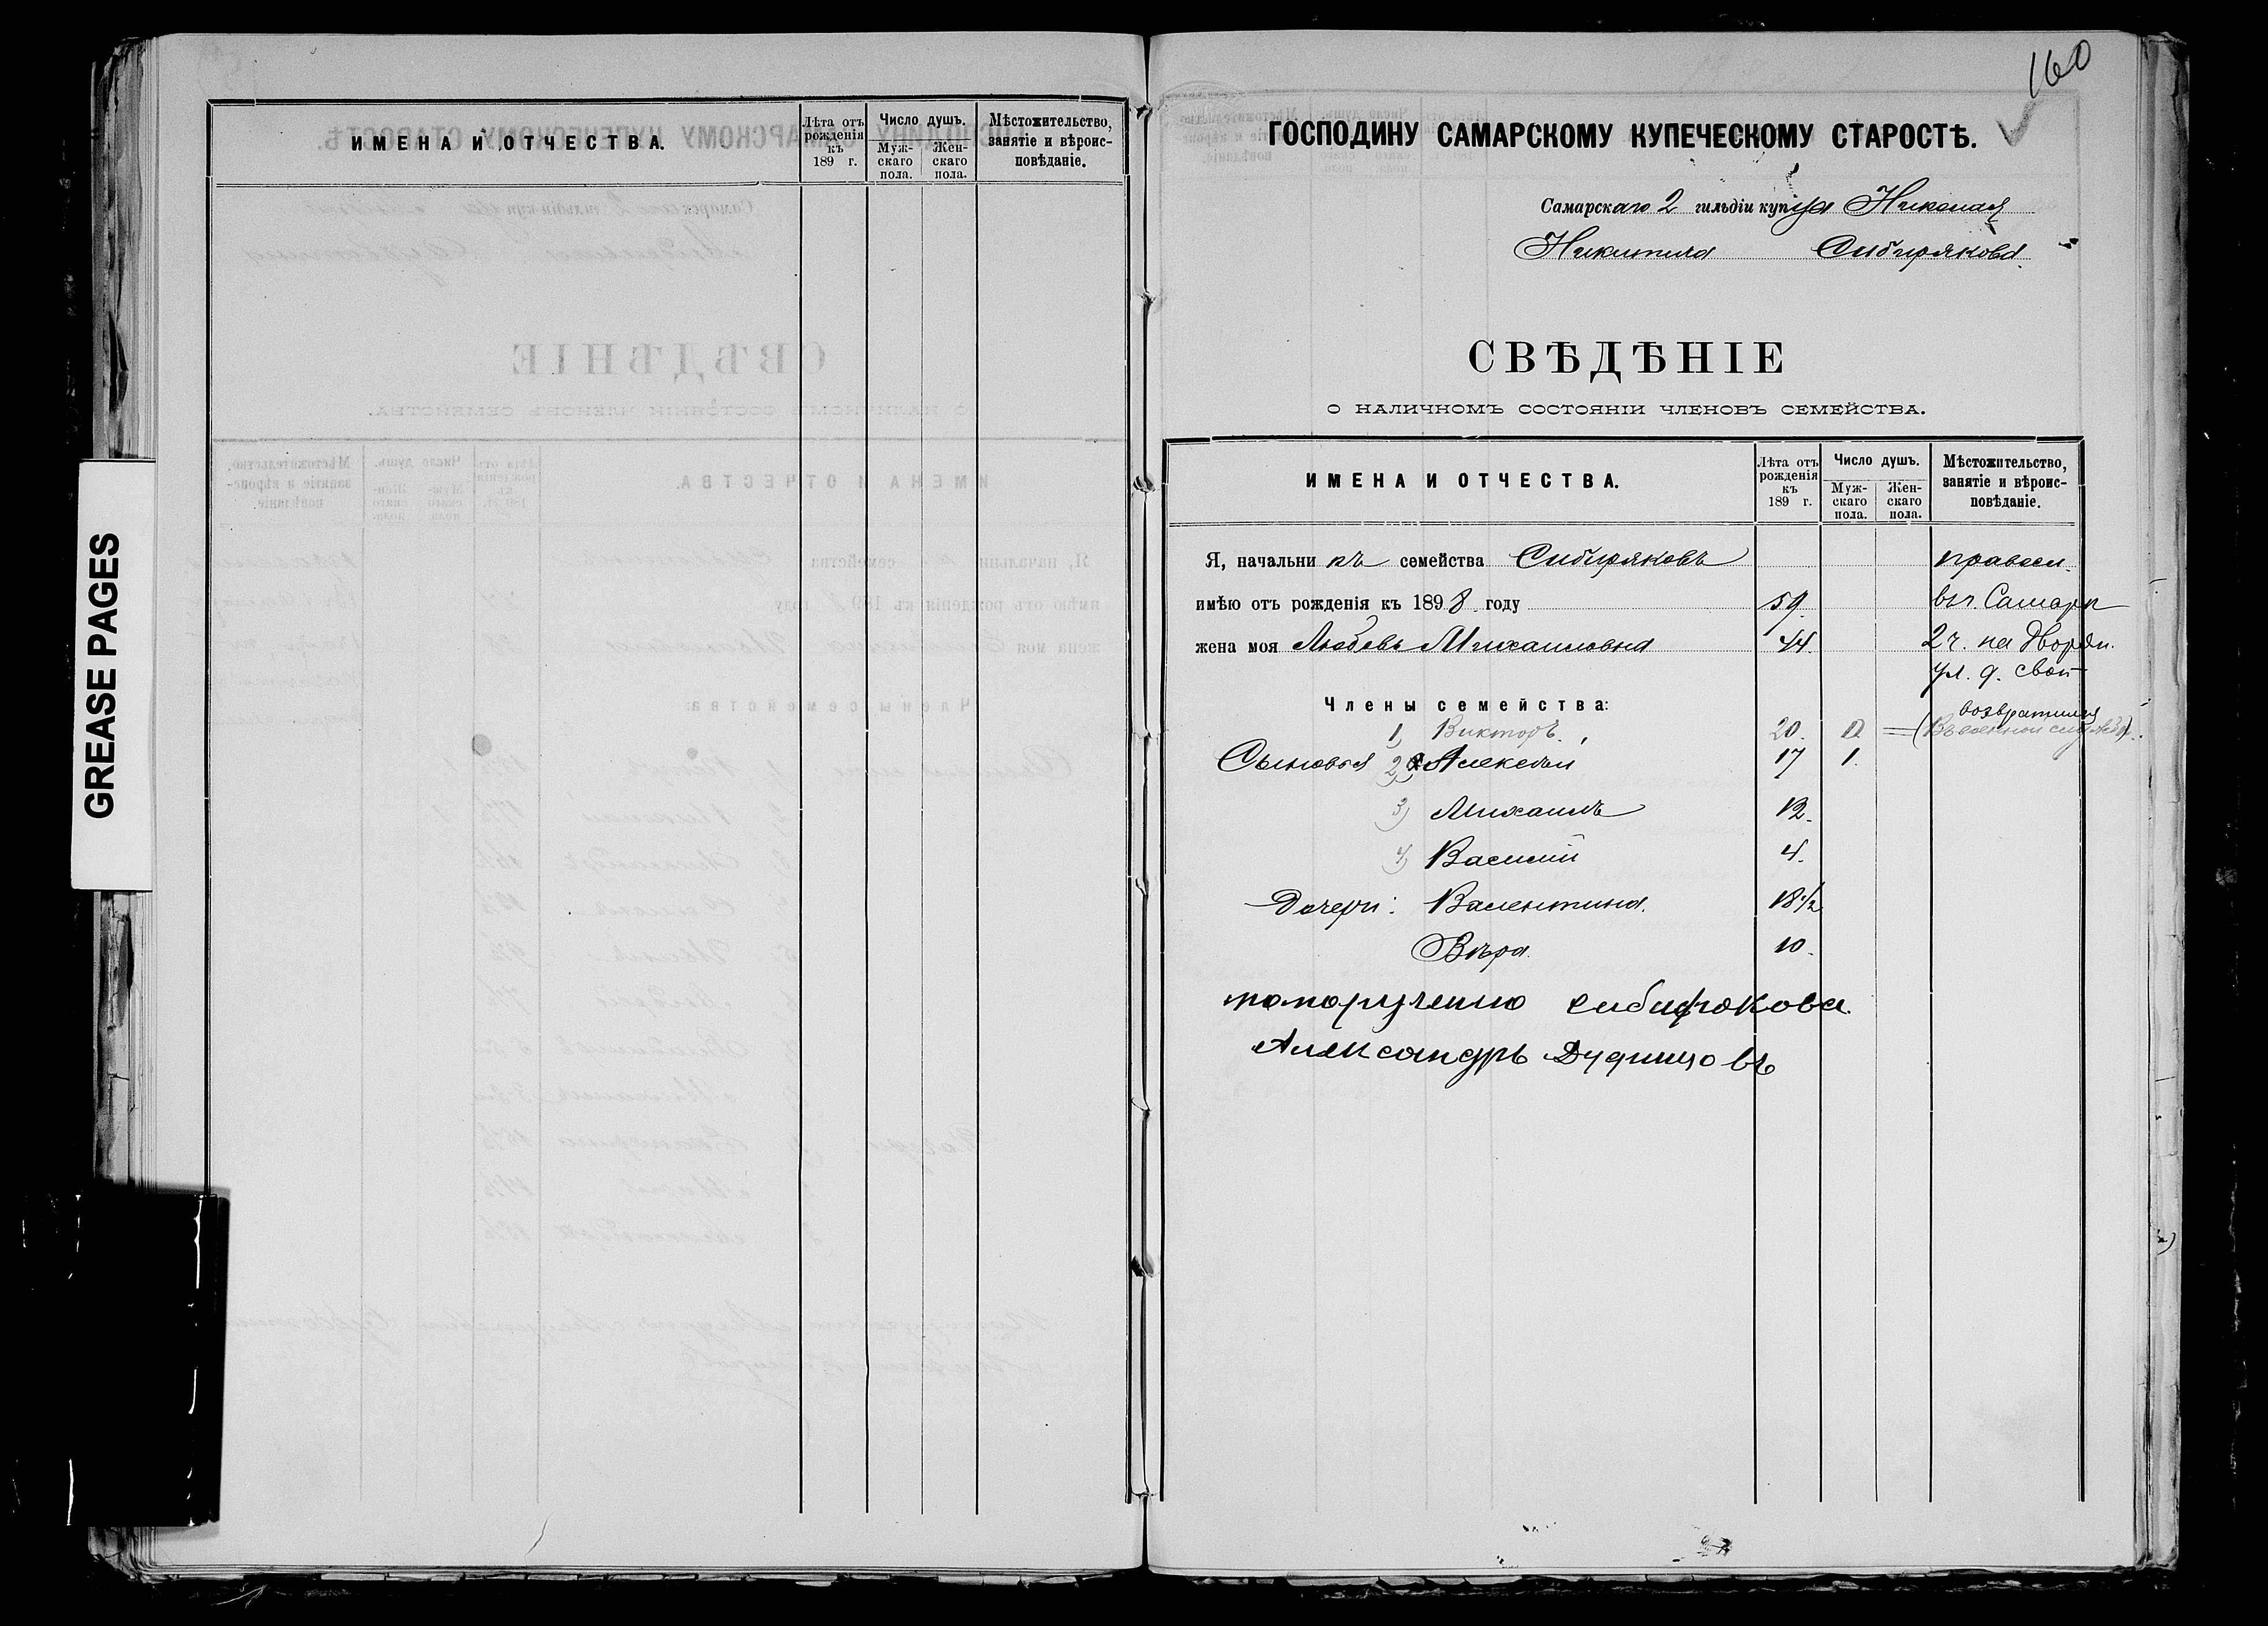 GREASE PAGES
ИМЕНА И ОТЧЕСТВА.
Лѣта отъ рожденія къ 189 г.
Число душъ.
Муж-скаго пола.
Жен-скаго пола.
Мѣстожительство, занятіе и вѣроис-повѣданіе.
160
ГОСПОДИНУ САМАРСКОМУ КУПЕЧЕСКОМУ СТАРОСТѢ.
Самарскаго 2 гильдіи купца Николая
Никитича Сибирякова
СВѢДѢНІЕ
О НАЛИЧНОМЪ СОСТОЯНІИ ЧЛЕНОВЪ СЕМЕЙСТВА.
ИМЕНА И ОТЧЕСТВА.
Лѣта отъ рожденія къ 189 г.
Число душъ.
Муж-скаго пола.
Жен-скаго пола.
Мѣстожительство, занятіе и вѣроис-повѣданіе.
Я, начальни къ семейства Сибиряковъ правосл.
имѣю отъ рожденія къ 1898 году 59. въ г. Самарѣ
жена моя Любовь Михаиловна 44. 2 ч. на Дворян.
ул. д. свой
Члены семейства: возвратился
1) Викторъ. 20. (Въ военной службѣ).
Сыновья 2) Алексѣй 17 1.
3) Михаилъ 12.
4) Василій 4.
Дочери: Валентина. 18 1/2
Вѣра. 10.
по поручению сибирякова
Александръ